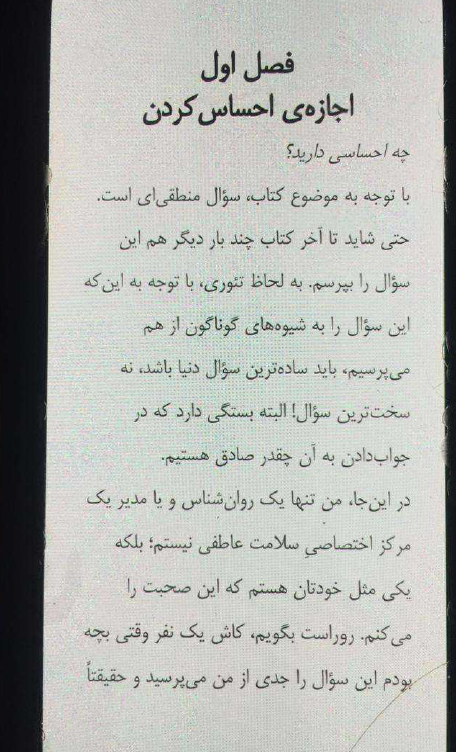 فصل اول
اجازه‌ی احساس‌کردن
چه احساسی دارید؟
با توجه به موضوع کتاب، سؤال منطقی‌ای است.
حتی شاید تا آخر کتاب چند بار دیگر هم این
سؤال را بپرسم. به لحاظ تئوری، با توجه به این‌که
این سؤال را به شیوه‌های گوناگون از هم
می‌پرسیم، باید ساده‌ترین سؤال دنیا باشد، نه
سخت‌ترین سؤال! البته بستگی دارد که در
جواب‌دادن به آن چقدر صادق هستیم.
در این‌جا، من تنها یک روان‌شناس و یا مدیر یک
مرکز اختصاصیِ سلامت عاطفی نیستم؛ بلکه
یکی مثل خودتان هستم که این صحبت را
می‌کنم. روراست بگویم، کاش یک نفر وقتی بچه
بودم این سؤال را جدی از من می‌پرسید و حقیقتاً